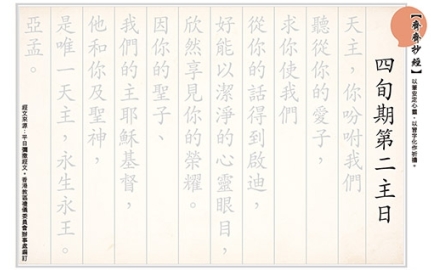 【齊齊抄經】
以筆安定心靈，以習字化作祈禱。
四旬期第二主日
天主，你吩咐我們
聽從你的愛子，
求你使我們
從你的話得到啟迪，
好能以潔淨的心靈眼目，
欣然享見你的榮耀。
因你的聖子、
我們的主耶穌基督，
他和你及聖神，
是唯一天主，永生永王。
亞孟。
經文來源：平日彌撒經文，香港教區禮儀委員會辦事處編訂